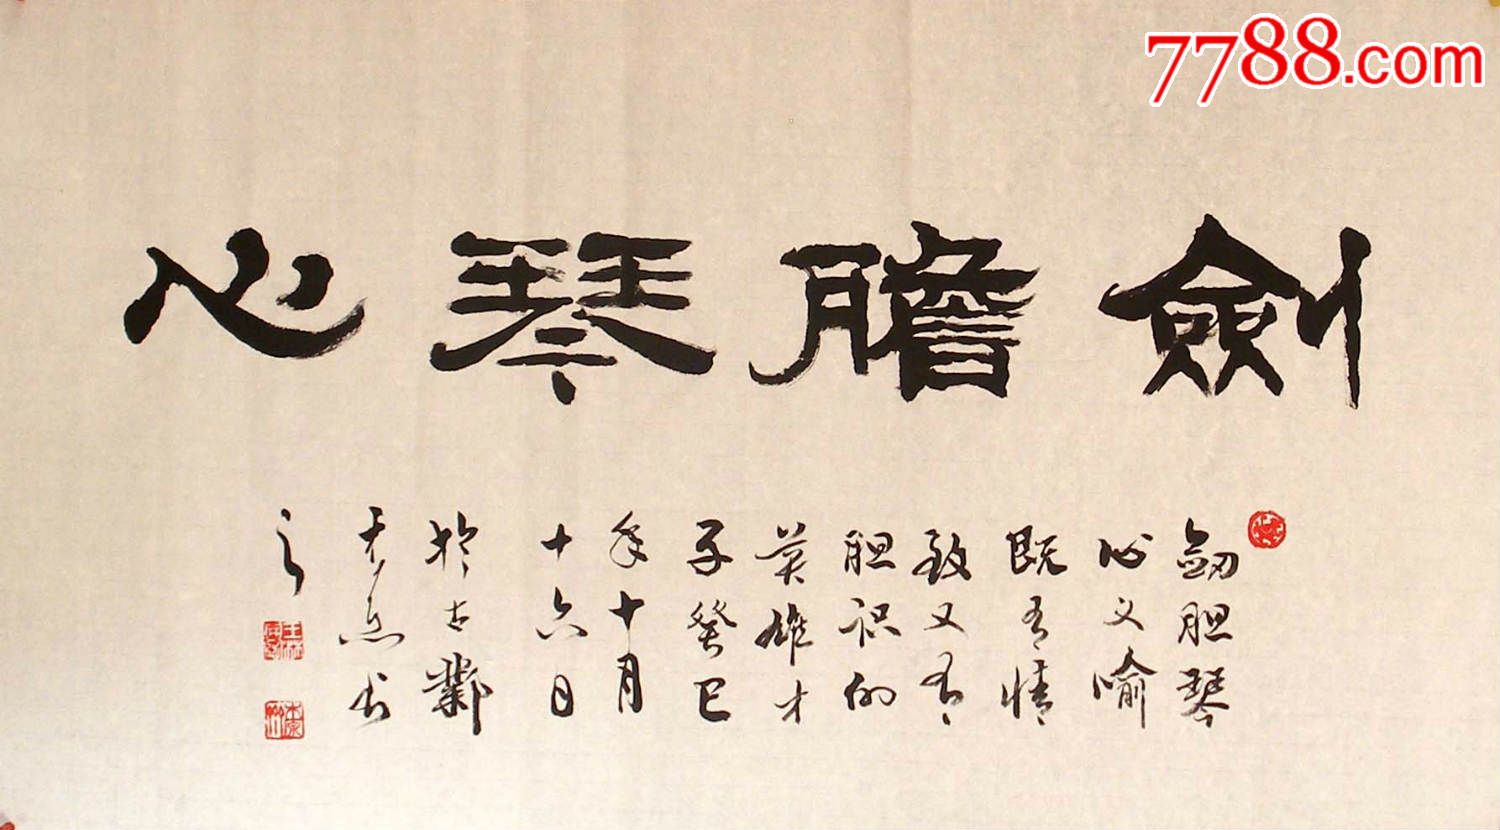 7788.com
劍膽琴心
劒胆琴
心文喻
既有情
致又有
胆识的
英雄才
子癸巳
年十月
十六日
於古鄴